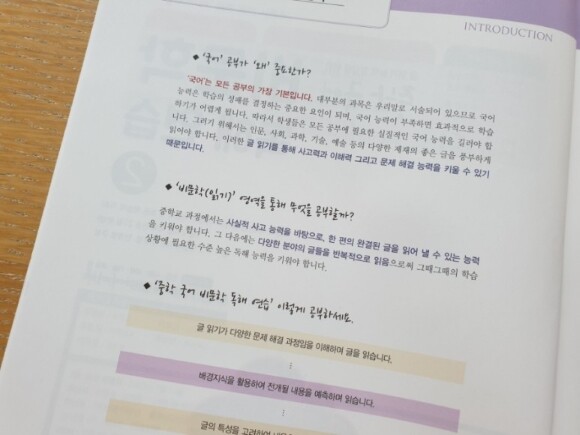 INTRODUCTION
◆ '국어' 공부가 '왜' 중요한가?
'국어'는 모든 공부의 가장 기본입니다. 대부분의 과목은 우리말로 서술되어 있으므로 국어
능력은 학습의 성패를 결정하는 중요한 요인이 되며, 국어 능력이 부족하면 효과적으로 학습
하기가 어렵게 됩니다. 따라서 학생들은 모든 공부에 필요한 실질적인 국어 능력을 길러야 합
니다. 그러기 위해서는 인문, 사회, 과학, 기술, 예술 등의 다양한 제재의 좋은 글을 풍부하게
읽어야 합니다. 이러한 글 읽기를 통해 사고력과 이해력 그리고 문제 해결 능력을 키울 수 있기
때문입니다.
◆ '비문학(읽기)' 영역을 통해 무엇을 공부할까?
중학교 과정에서는 사실적 사고 능력을 바탕으로, 한 편의 완결된 글을 읽어 낼 수 있는 능력
을 키워야 합니다. 그 다음에는 다양한 분야의 글들을 반복적으로 읽음으로써 그때그때의 학습
상황에 필요한 수준 높은 독해 능력을 키워야 합니다.
◆ '중학 국어 비문학 독해 연습' 이렇게 공부하세요.
글 읽기가 다양한 문제 해결 과정임을 이해하며 글을 읽습니다.
배경지식을 활용하여 전개될 내용을 예측하며 읽습니다.
글의 특성을 고려하여